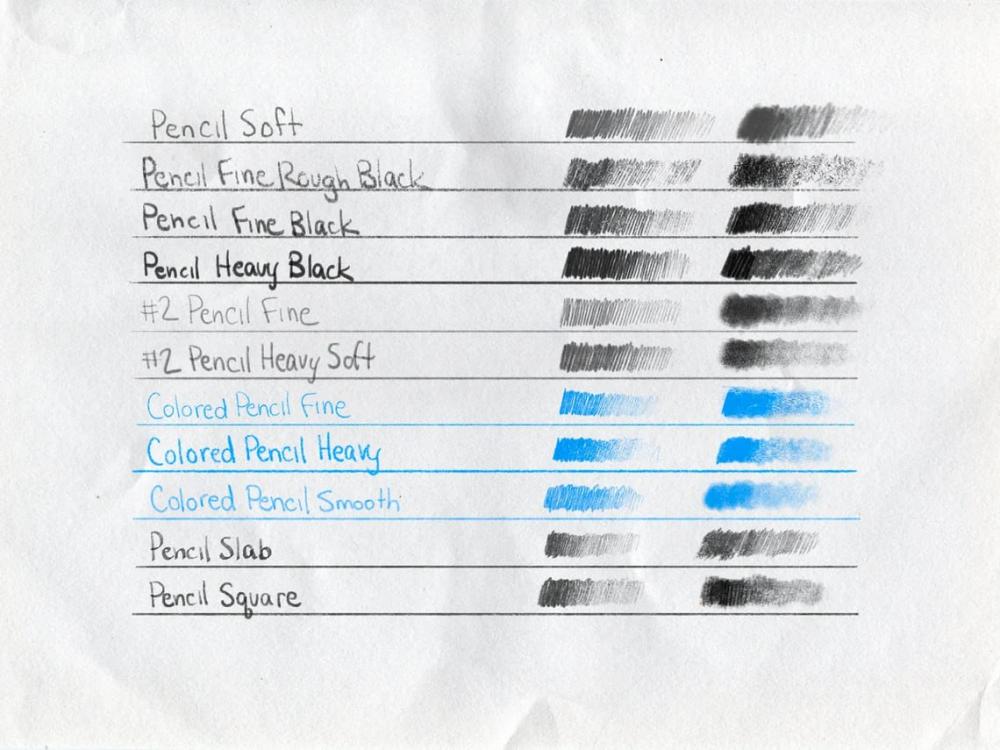 Pencil Soft
Pencil Fine Rough Black
Pencil Fine Black
Pencil Heavy Black
#2 Pencil Fine
#2 Pencil Heavy Soft
Colored Pencil Fine
Colored Pencil Heavy
Colored Pencil Smooth
Pencil Slab
Pencil Square